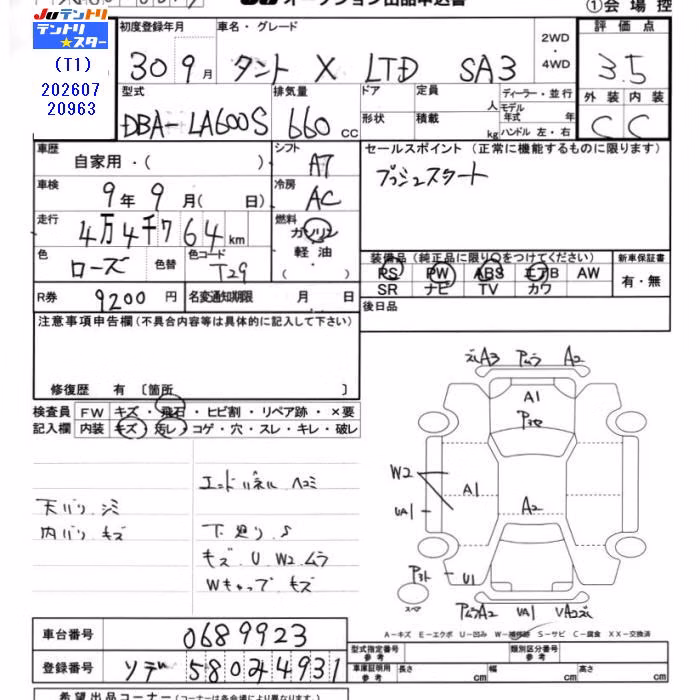 JU オークション出品申込書
①会場控
Juテントリ
テントリ
★スター
(T1)
202607
20963
初度登録年月
車名・グレード
2WD
・
4WD
評価点
30 9月
タント X LTD SA3
3.5
型式
排気量
ドア
定員
ディーラー・並行
外装 内装
人
モデル
年式 年
形状
積載
kg
ハンドル 左・右
DBA-LA600S
660 cc
C C
車歴
自家用・( )
シフト
AT
セールスポイント (正常に機能するものに限ります)
プッシュスタート
車検
9年9月( 日)
冷房
AC
走行
4万4千764 km
燃料
ガソリン
軽油
( ・ )
色
ローズ
色替
色コード
T29
装備品 (純正品に限り○をつけてください)
新車保証書
PS PW ABS エアB AW
SR ナビ TV カワ
有・無
R券
9200円
名変通知期限
月 日
後日品
注意事項申告欄(不具合内容等は具体的に記入して下さい)
修復歴 有 〔箇所 〕
検査員
記入欄
FW キズ・飛石・ヒビ割・リペア跡・×要
内装 キズ・汚レ・コゲ・穴・スレ・キレ・破レ
エンドパネル ヘコミ
天バリ シミ
内バリ キズ
下廻り S
キズ U W2 ムラ
Wキャップ キズ
A3 ムラ A2
A1
W2
UA1
A1
A2
U1
スペア
A2 UA1 VA2
A-キズ E-エクボ U-凹み W-補修跡 S-サビ C-腐食 XX-交換済
車台番号
0689923
型式指定番号
参考
類別区分番号
参考
登録番号
ソデ 580 4931
車庫証明用
参考
長さ
cm
幅
cm
高さ
cm
希望出品コーナー (コーナーは各会場により異なります。)